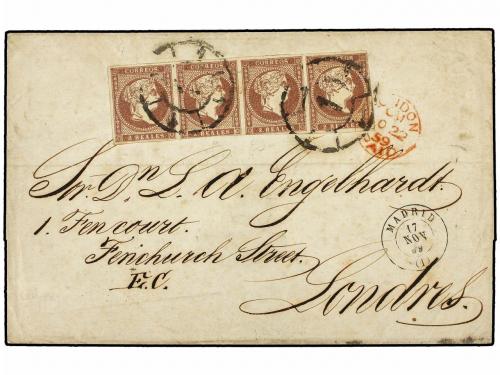 CORREOS CORREOS CORREOS CORREOS
2 REALES 2 REALES 2 REALES 2 REALES
LONDON
NO 22
59
PAID
Sr. Dn. L. A. Engelhardt.
1. Fencourt.
Fenchurch Street.
E.C.
Londres.
MADRID
17
NOV